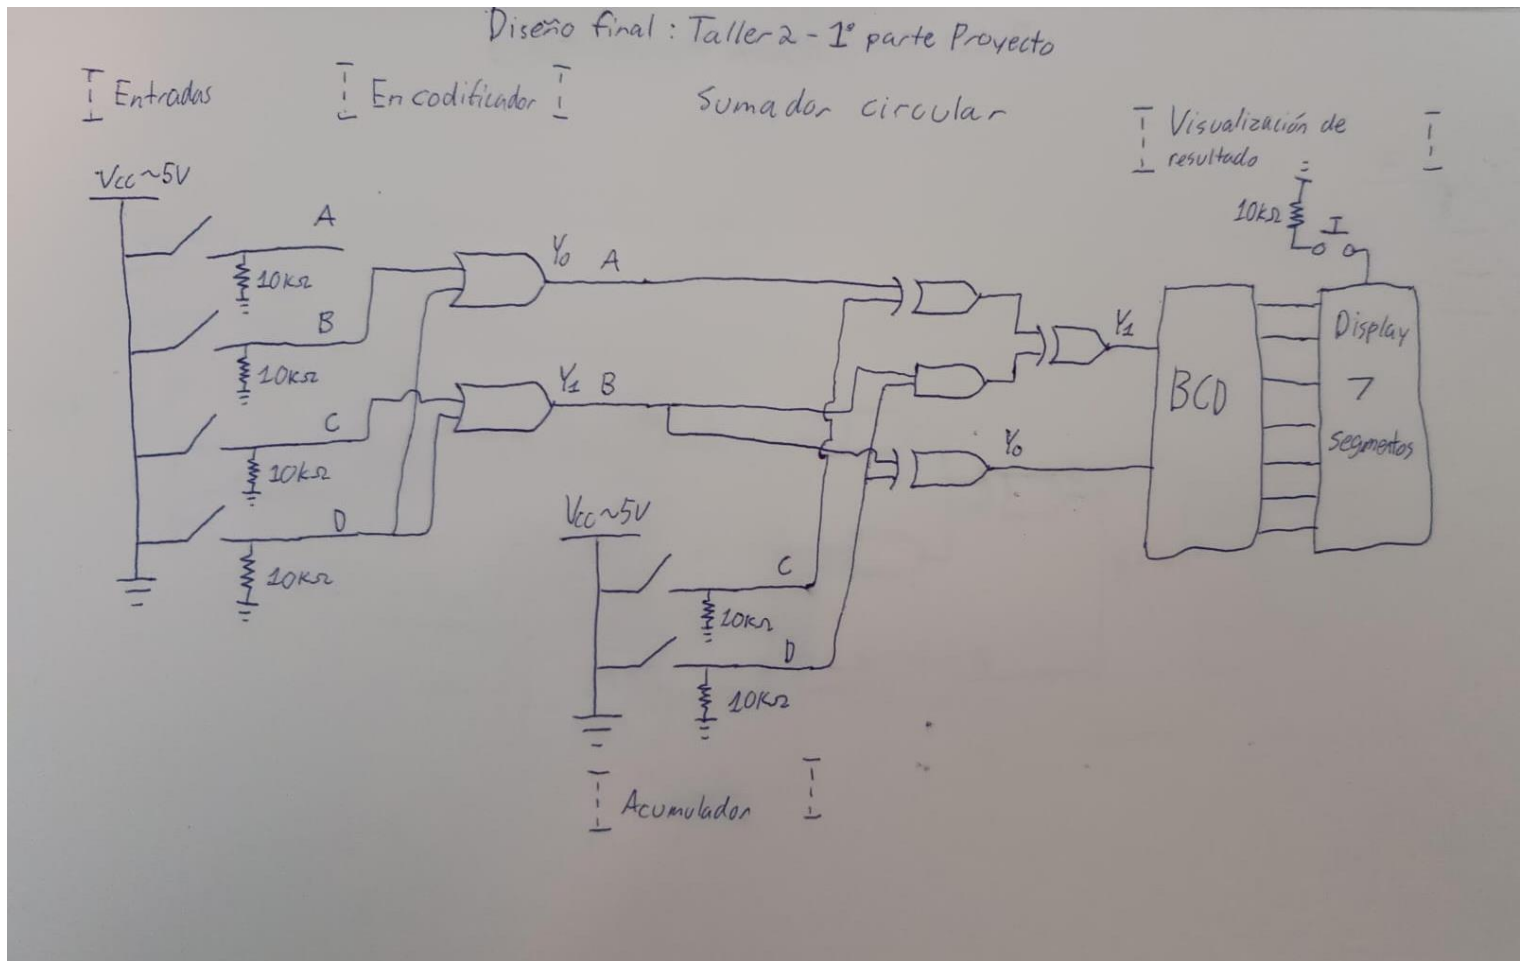 Diseño final: Taller 2 - 1° parte Proyecto
Entradas
Encodificador
Sumador circular
Visualización de
resultado
Vcc~5V
A
10kΩ
B
10kΩ
C
10kΩ
D
10kΩ
Y0 A
Y1 B
Vcc~5V
C
10kΩ
D
10kΩ
Acumulador
Y1
Y0
BCD
10kΩ
I
Display
7
segmentos